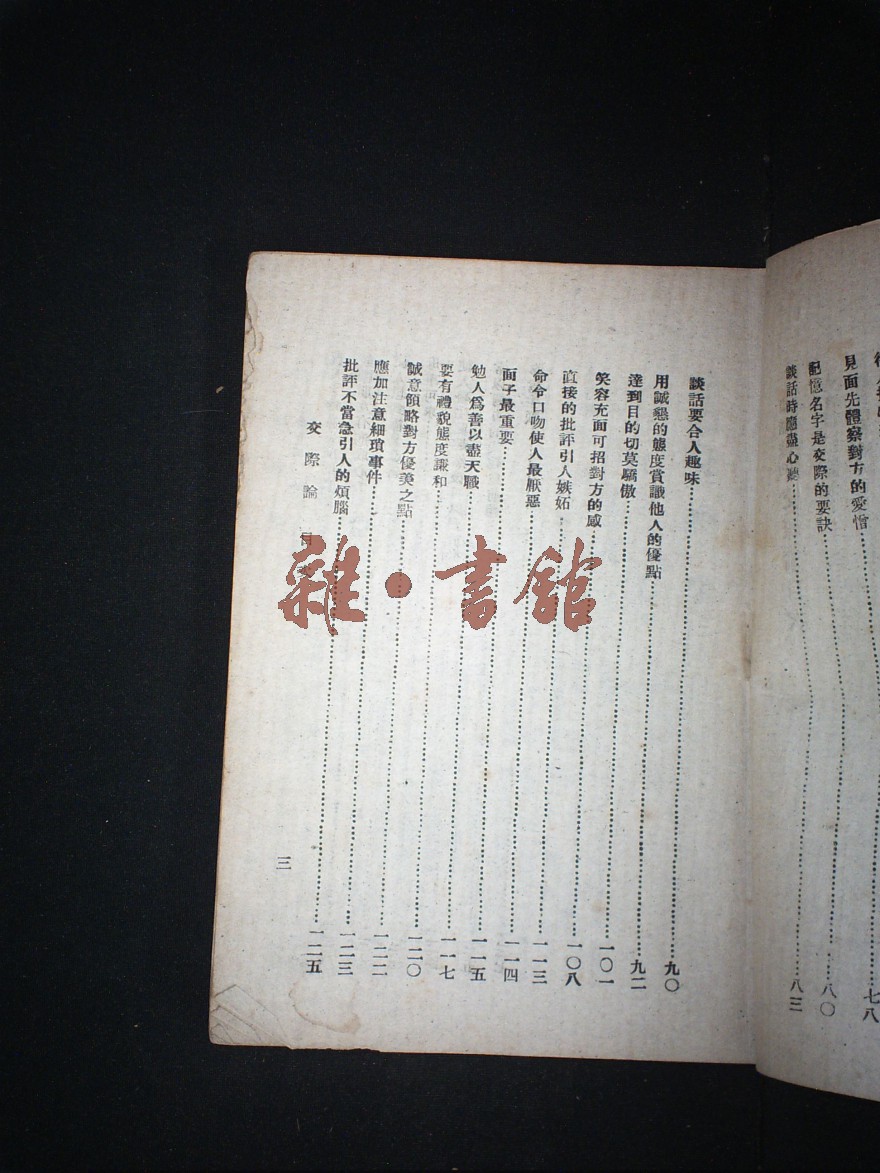 見面先體察對方的愛憎……七八
記憶名字是交際的要訣……八〇
談話時應盡心聽……八三
談話要合人趣味……九〇
用誠懇的態度賞識他人的優點……九二
達到目的切莫驕傲……一〇一
笑容充面可招對方的感……一〇八
直接的批評引人嫉妬……一一三
命令口吻使人最厭惡……一一四
面子最重要……一一五
勉人爲善以盡天職……一一七
要有禮貌態度謙和……一二〇
誠意領略對方優美之點……一二二
應加注意細瑣事件……一二三
批評不當急引人的煩腦……一二五
交際論 目
三
雜·書館